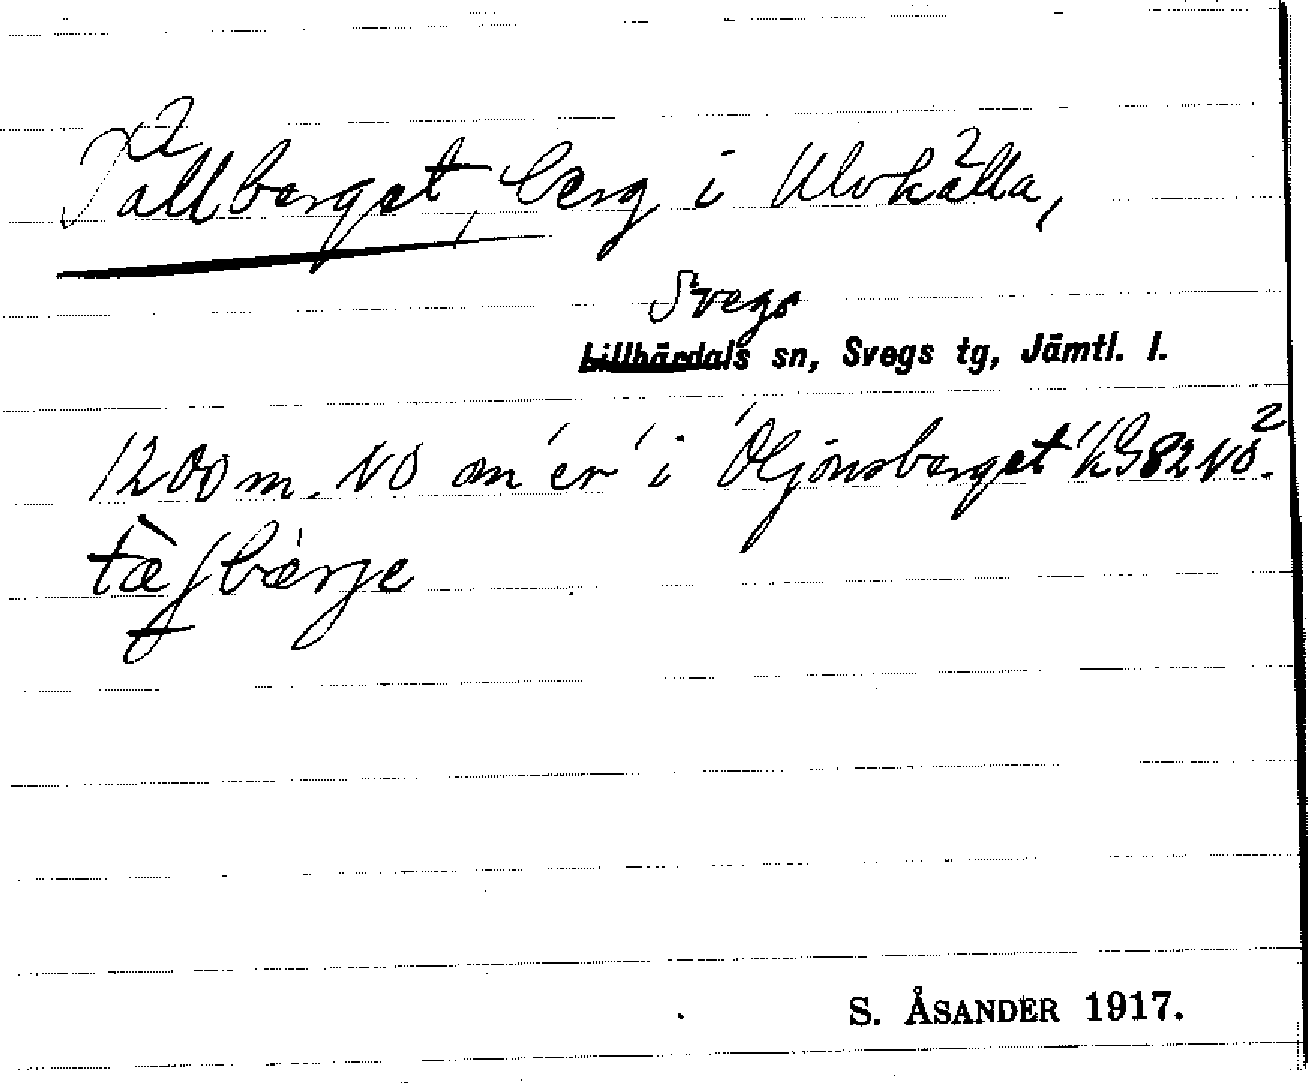 Tallberget, berg i Ulvkälla,
Svegs
Lillhärdals sn, Svegs tg, Jämtl. l.
1200 m. NO om er i Öljonsberget KG 82 NO².
S. ÅSANDER 1917.